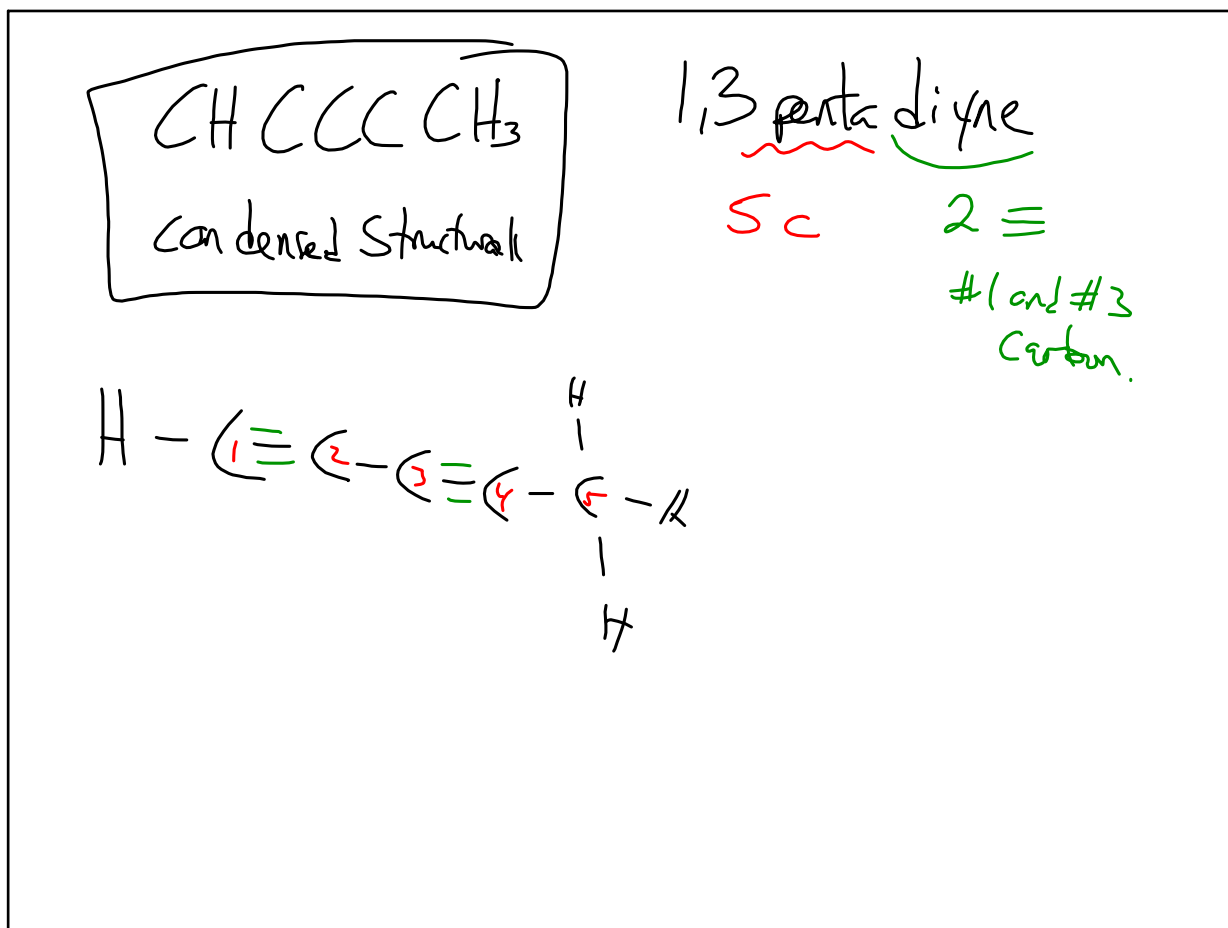 CHCCCCH₃
Condensed Structural
1,3 pentadiyne
5c
2 ≡
#1 and #3
Carbon.
H
H - C1 ≡ C2 - C3 ≡ C4 - C5 - H
H